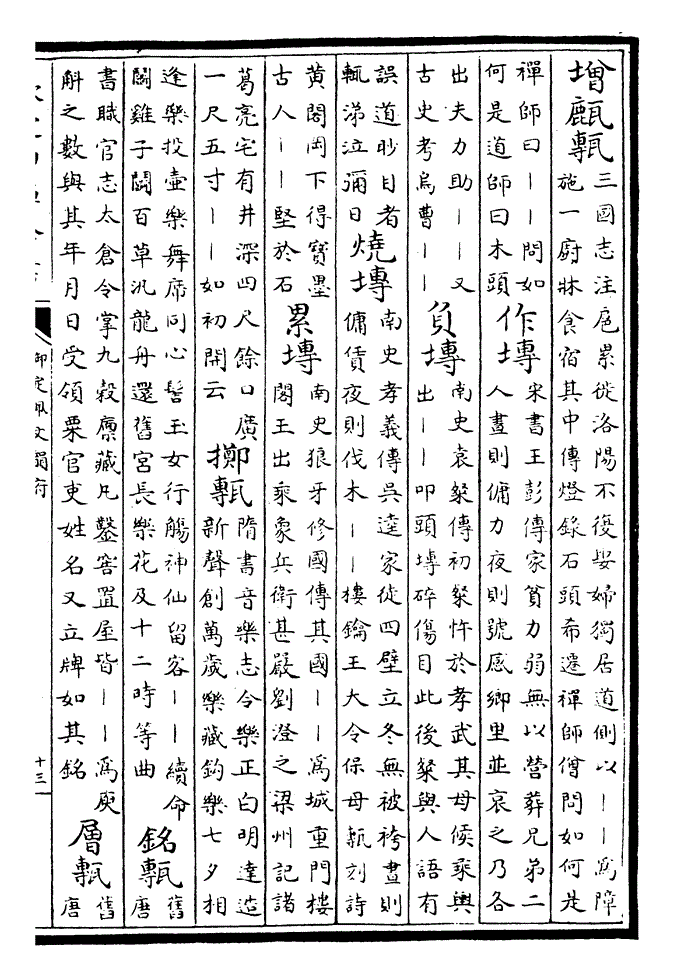 增㼾甎三國志注扈累徙洛陽不復娶婦獨居道側以——為障
施一廚牀食宿其中傳燈錄石頭希遷禪師僧問如何是
禪師曰——問如
何是道師曰木頭
作塼宋書王彭傳家貧力弱無以營葬兄弟二
人晝則傭力夜則號感鄉里並哀之乃各
出夫力助——又
古史考烏曹——
負塼南史袁粲傳初粲忤於孝武其母候乘輿
出——叩頭塼碎傷目此後粲與人語有
誤道眇目者
輒涕泣彌日
燒塼南史孝義傳吳逵家徒四壁立冬無被袴晝則
傭賃夜則伐木——樓鑰王大令保母甎刻詩
黃閣岡下得寶墨
古人——堅於石
累塼南史狼牙修國傳其國——為城重門樓
閣王出乘象兵衛甚嚴劉澄之梁州記諸
葛亮宅有井深四尺餘口廣
一尺五寸——如初開云
擲甎隋書音樂志令樂正白明達造
新聲創萬歲樂藏鉤樂七夕相
逢樂投壺樂舞席同心髻玉女行觴神仙留客——續命
鬬雞子鬬百草汎龍舟還舊宮長樂花及十二時等曲
銘甎舊
唐
書職官志太倉令掌九穀廪藏凡鑿窖置屋皆——為庾
斛之數與其年月日受領粟官吏姓名又立牌如其銘
層甎舊
唐
御定佩文韻府
十三